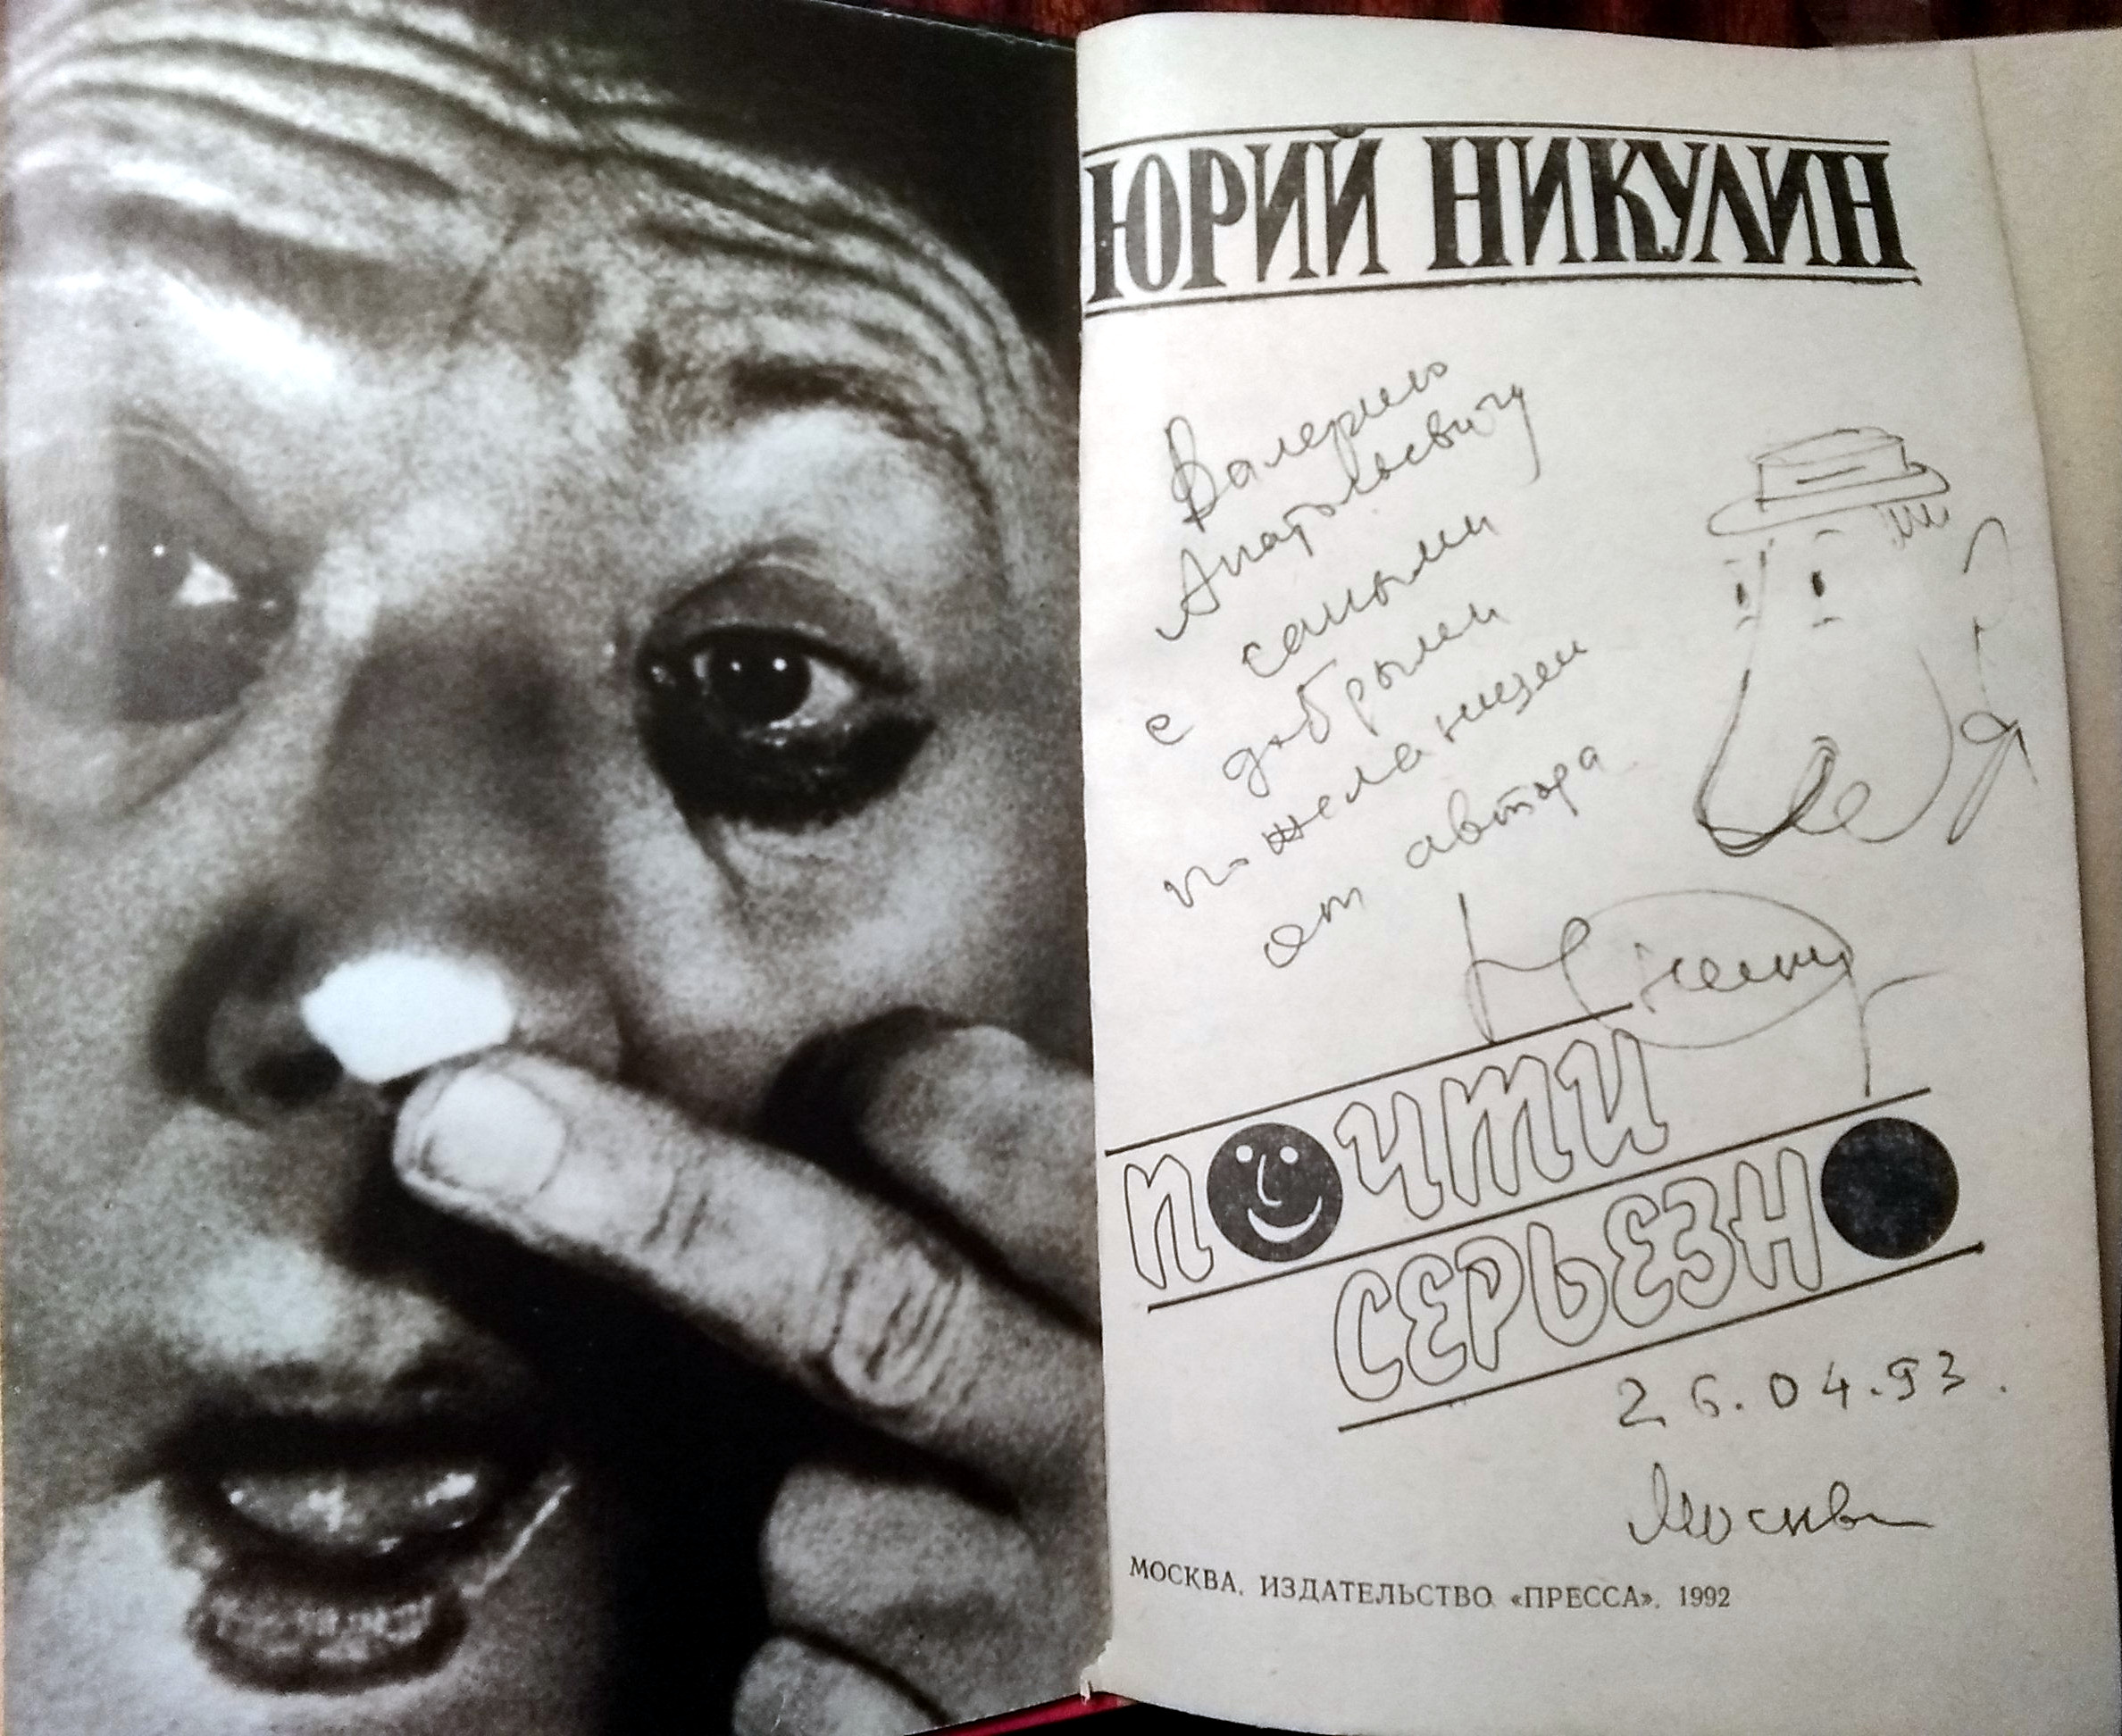 ЮРИЙ НИКУЛИН
Валерию
Анатольевичу
с самыми
добрыми
пожеланием
от автора
ПОЧТИ
СЕРЬЕЗНО
26.04.93.
Москва
МОСКВА. ИЗДАТЕЛЬСТВО «ПРЕССА». 1992